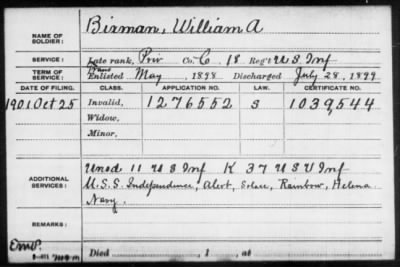 NAME OF SOLDIER: Birman, William A
SERVICE: Late rank, Priv Co. C 18 Reg't U S Inf
TERM OF SERVICE: Enlisted May, 1898 Discharged July 28, 1899
DATE OF FILING. CLASS. APPLICATION NO. LAW. CERTIFICATE NO.
1901 Oct 25 Invalid, 1276552 S 1039544
Widow,
Minor,
ADDITIONAL SERVICES: Unod 11 U S Inf K 37 U S V Inf
U.S.S. Independence, Alert, Solace, Rainbow, Helena
Navy.
REMARKS:
Died , 1 , at